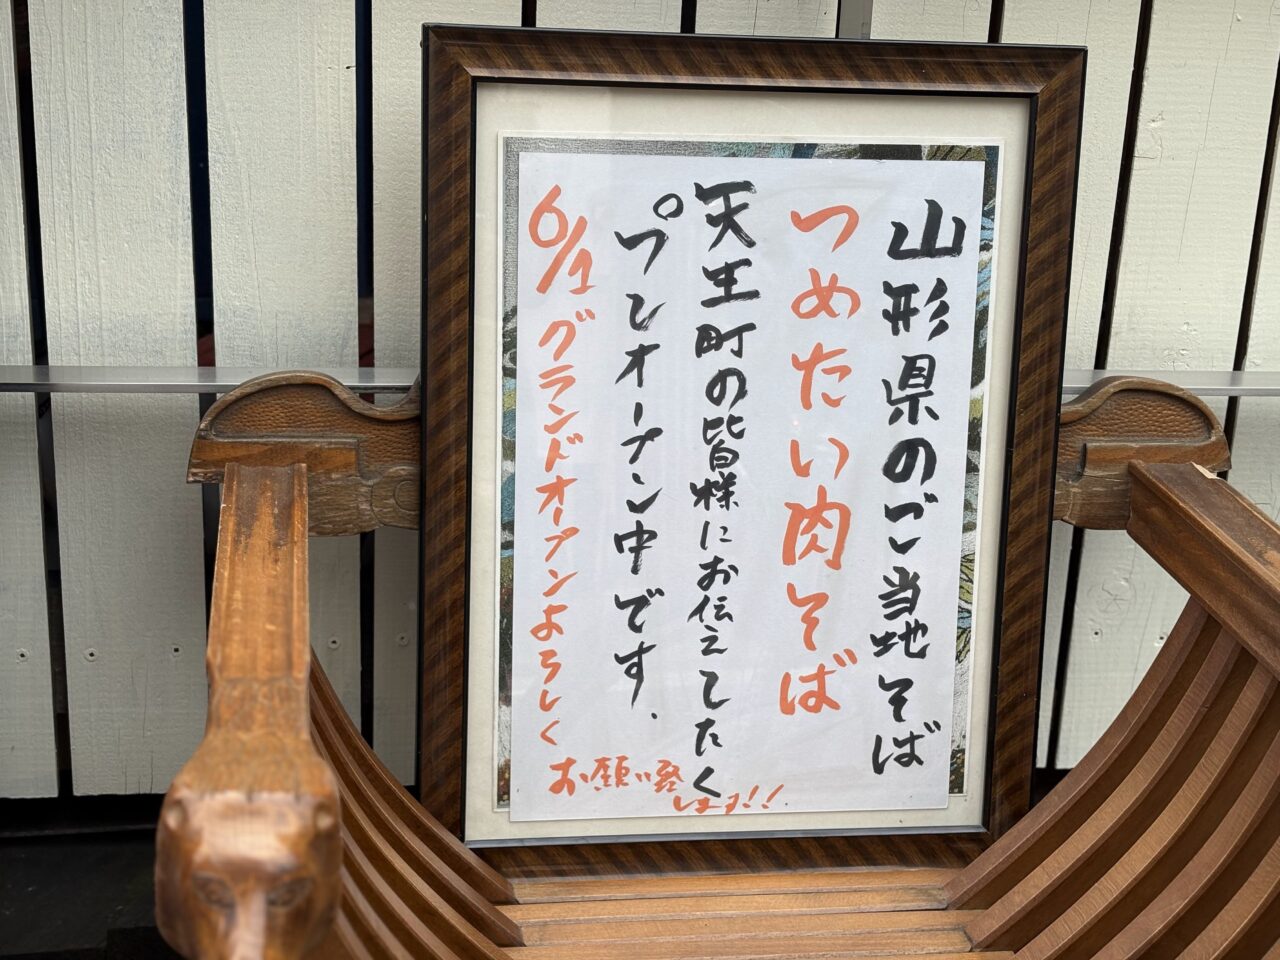 山形県のご当地そば
つめたい肉そば
天王町の皆様にお伝えしたく
プレオープン中です.
6/1グランドオープンよろしく
お願い致
します!!